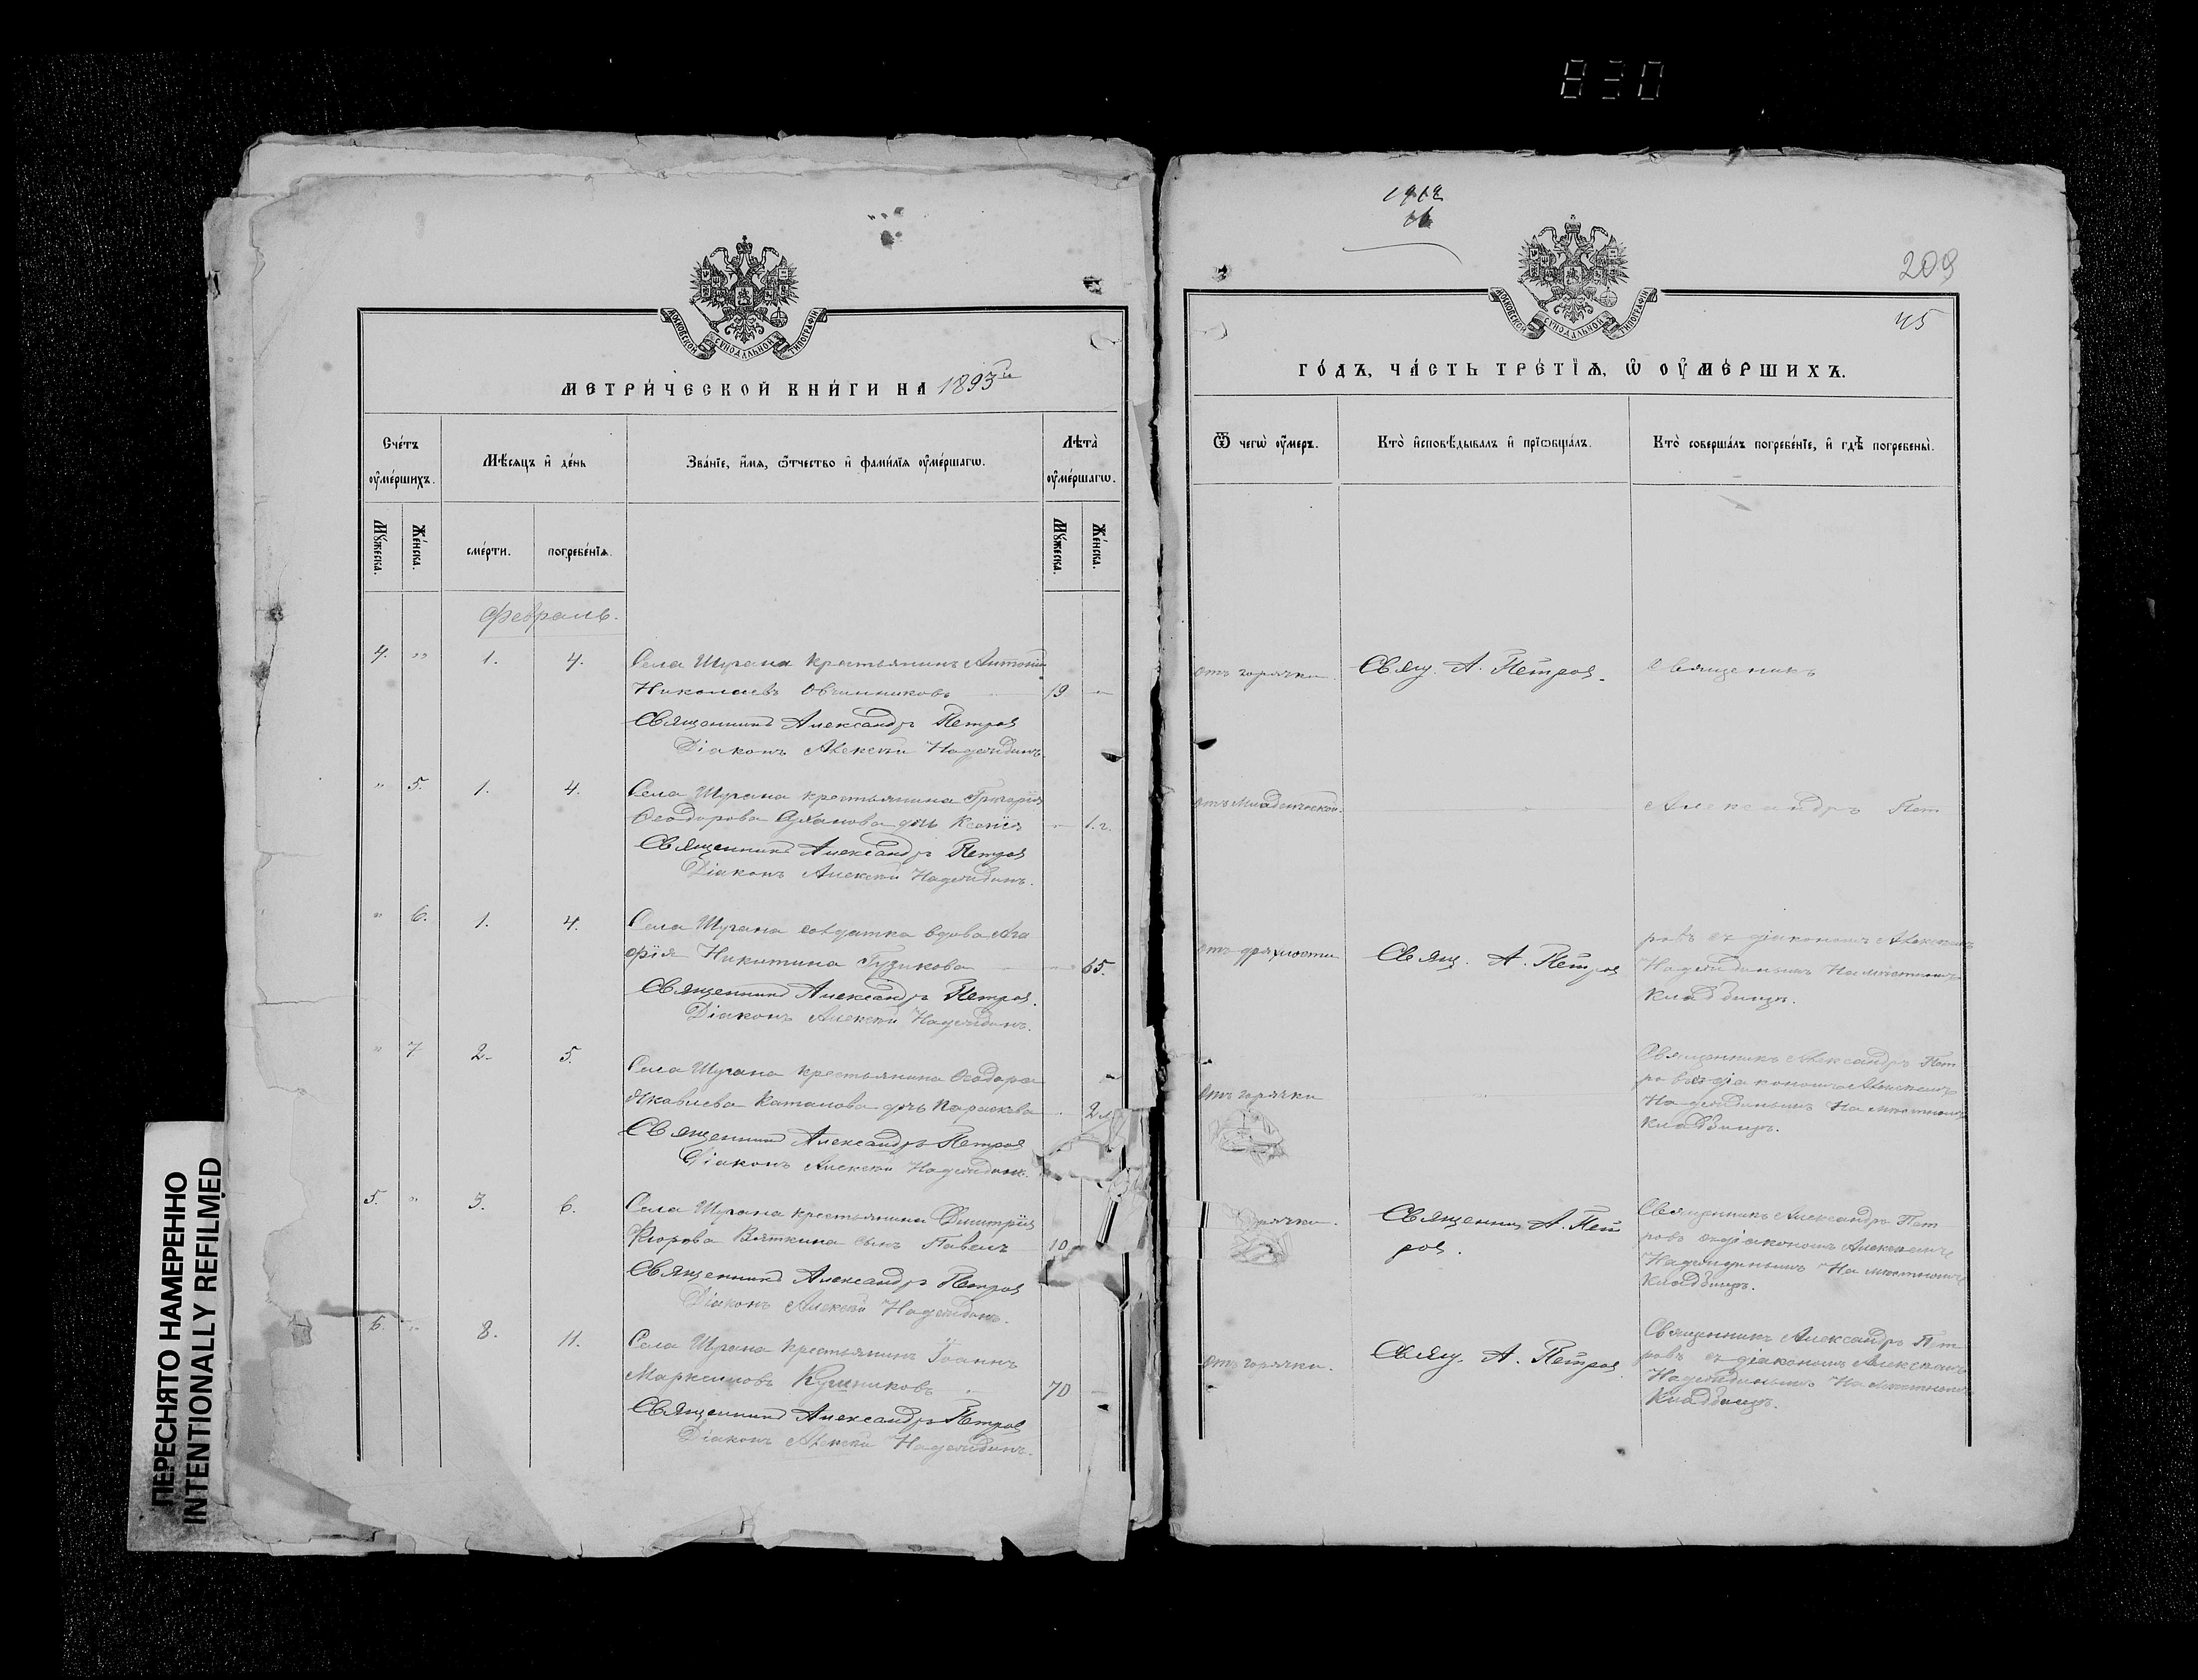 830
ПЕРЕСНЯТО НАМЕРЕННО
INTENTIONALLY REFILMED
МОСКОВСКОЙ СѴНОДАЛЬНОЙ ТИПОГРАФІИ
МЕТРИ́ЧЕСКОЙ КНИ́ГИ НА 1893й
Счéтъ ᲂу҆мéршихъ.
Мѣ́сяцъ и҆ дéнь
Звáнїе, и҆́мѧ, ѻ҆́тчество и҆ фамѝлїѧ ᲂу҆мéршагѡ.
Лѣ́та ᲂу҆мéршагѡ.
Мꙋ́жеска.
Жéнска.
смéрти.
погребéнїѧ.
Мꙋ́жеска.
Жéнска.
Февраль.
4. " 1. 4. Села Шугана крестьянинъ Антоній
Николаевъ Овчинниковъ 19 —
Священникъ Александръ Петров
Діаконъ Алексѣй Надеждинъ.
" 5. 1. 4. Села Шугана крестьянина Григорія
Ѳеодорова дочь Ксенія — 1 г.
Священникъ Александръ Петров
Діаконъ Алексѣй Надеждинъ.
" 6. 1. 4. Села Шугана солдатка вдова Ага
фія Никитина Гузикова — 65.
Священникъ Александръ Петров.
Діаконъ Алексѣй Надеждинъ.
" 7 2. 5. Села Шугана крестьянина Ѳеодора
Яковлева Каталова дочь Параскева 2
Священникъ Александръ Петров
Діаконъ Алексѣй Надеждинъ.
5. " 3. 6. Села Шугана крестьянина Димитрія
Вяткина сынъ Павелъ 10
Священникъ Александръ Петров
Діаконъ Алексѣй Надеждинъ.
6. " 8. 11. Села Шугана крестьянинъ Іоаннъ
Марксимовъ Кушниковъ 70 —
Священникъ Александръ Петров
Діаконъ Алексѣй Надеждинъ.
1912
209
45
МОСКОВСКОЙ СѴНОДАЛЬНОЙ ТИПОГРАФІИ
ГО́ДЪ, ЧА́СТЬ ТРЕ́ТЇѦ, Ѡ҆ ОУ҆МЕ́РШИХЪ.
Ѿ чегѡ̀ ᲂу҆́меръ.
Ктò и҆сповѣ́дывалъ и҆ прїѡбщáлъ.
Ктò совершáлъ погребéнїе, и҆ гдѣ̀ погребены̀.
отъ горячки.
Свящ. А. Петров.
Священникъ
отъ младенческой.
Александръ Пет
отъ дряхлости
Свящ. А. Петров
ровъ съ діакономъ Алексѣемъ
Надеждинымъ На мѣстномъ
кладбищѣ.
отъ горячки
Священникъ Александръ Пет
ровъ съ діакономъ Алексѣемъ
Надеждинымъ На мѣстномъ
кладбищѣ.
рячки.
Священник А. Пет
ров.
Священникъ Александръ Пет
ровъ съ діакономъ Алексѣемъ
Надеждинымъ На мѣстномъ
кладбищѣ.
отъ горячки.
Свящ. А. Петров.
Священникъ Александръ Пет
ровъ съ діакономъ Алексѣемъ
Надеждинымъ На мѣстномъ
Кладбищѣ.